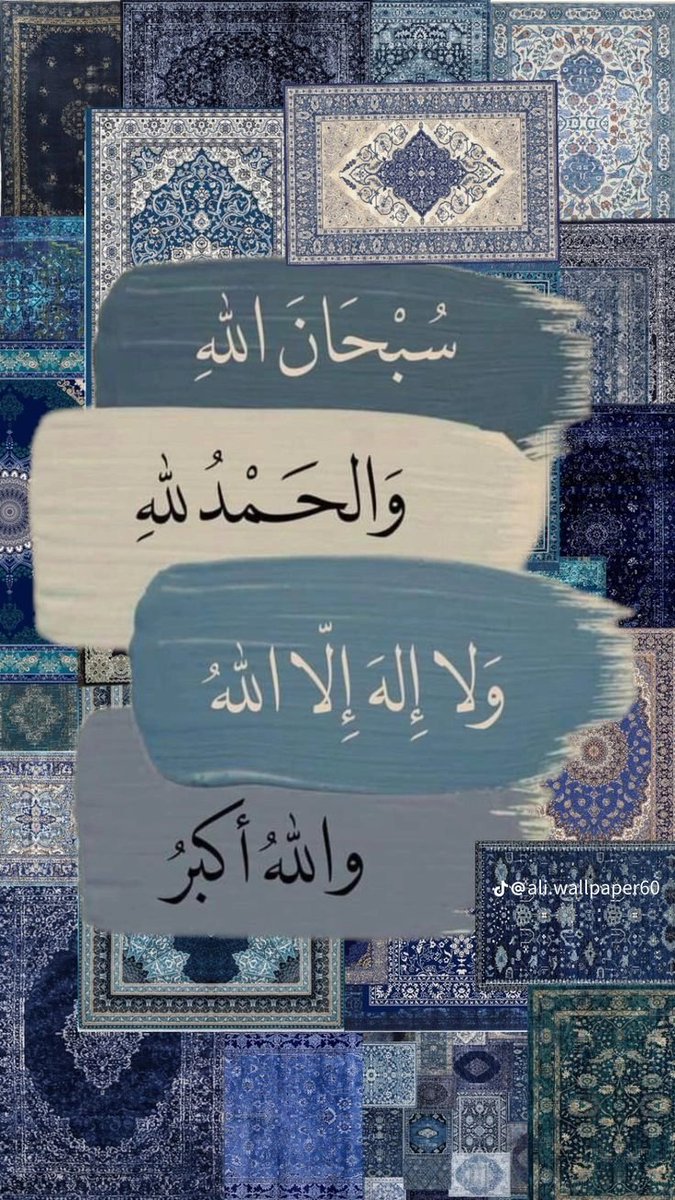 سُبْحَانَ اللهِ
وَالحَمْدُ للهِ
وَلا إِلهَ إِلّا اللهُ
واللهُ أكبرُ
@ali.wallpaper60